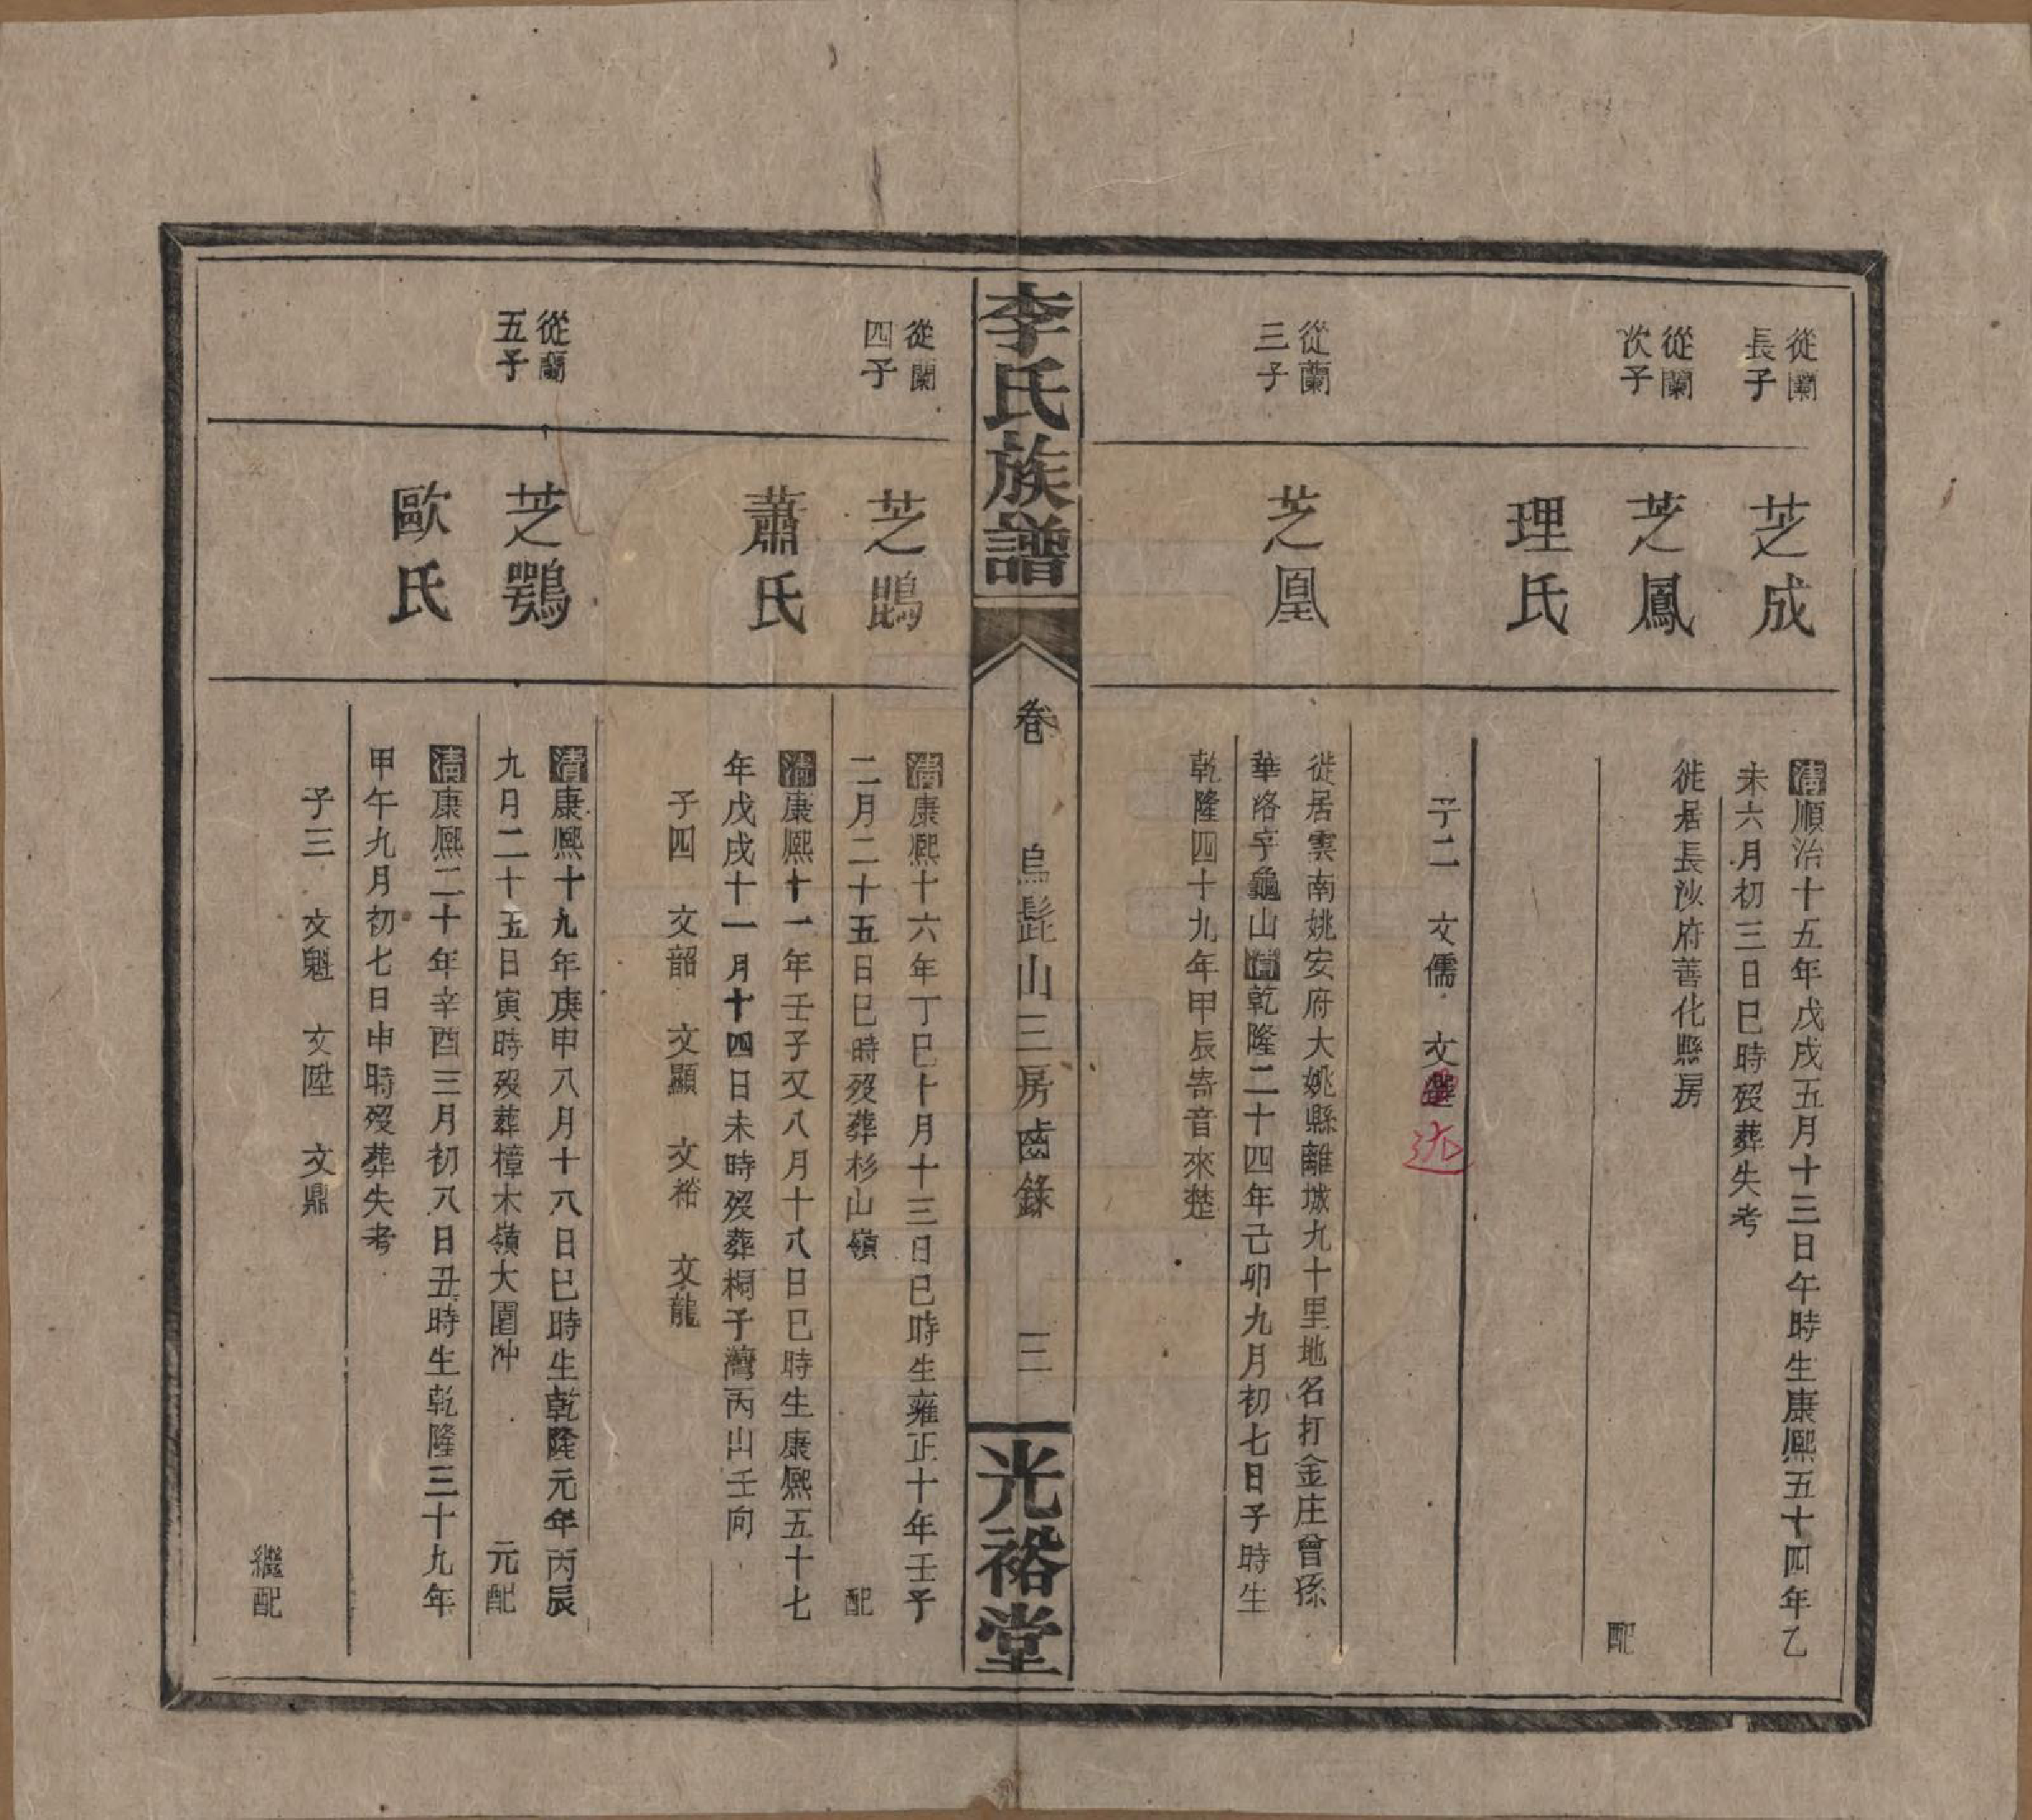 從蘭
長子
芝成
清順治十五年戊戌五月十三日午時生康熙五十四年乙
未六月初三日巳時歿葬失考
從蘭
次子
芝鳳
徙居長沙府善化縣房
配
理氏
子二　文儒　文
达
從蘭
三子
芝凰
徙居雲南姚安府大姚縣離城九十里地名打金庄曾孫
華洛字龜山清乾隆二十四年己卯九月初七日子時生
乾隆四十九年甲辰寄音來楚
李氏族譜
卷
烏髭山三房齒錄
三
光裕堂
從蘭
四子
芝鵾
清康熙十六年丁巳十月十三日巳時生雍正十年壬子
二月二十五日巳時歿葬杉山嶺
配
蕭氏
清康熙十一年壬子又八月十八日巳時生康熙五十七
年戊戌十一月十四日未時歿葬桐子灣丙山壬向
子四　文韶　文顯　文裕　文龍
從蘭
五子
芝鶚
清康熙十九年庚申八月十八日巳時生乾隆元年丙辰
九月二十五日寅時歿葬樟木嶺大園冲
元配
歐氏
清康熙二十年辛酉三月初八日丑時生乾隆三十九年
甲午九月初七日申時歿葬失考
子三　文魁　文陞　文鼎
繼配